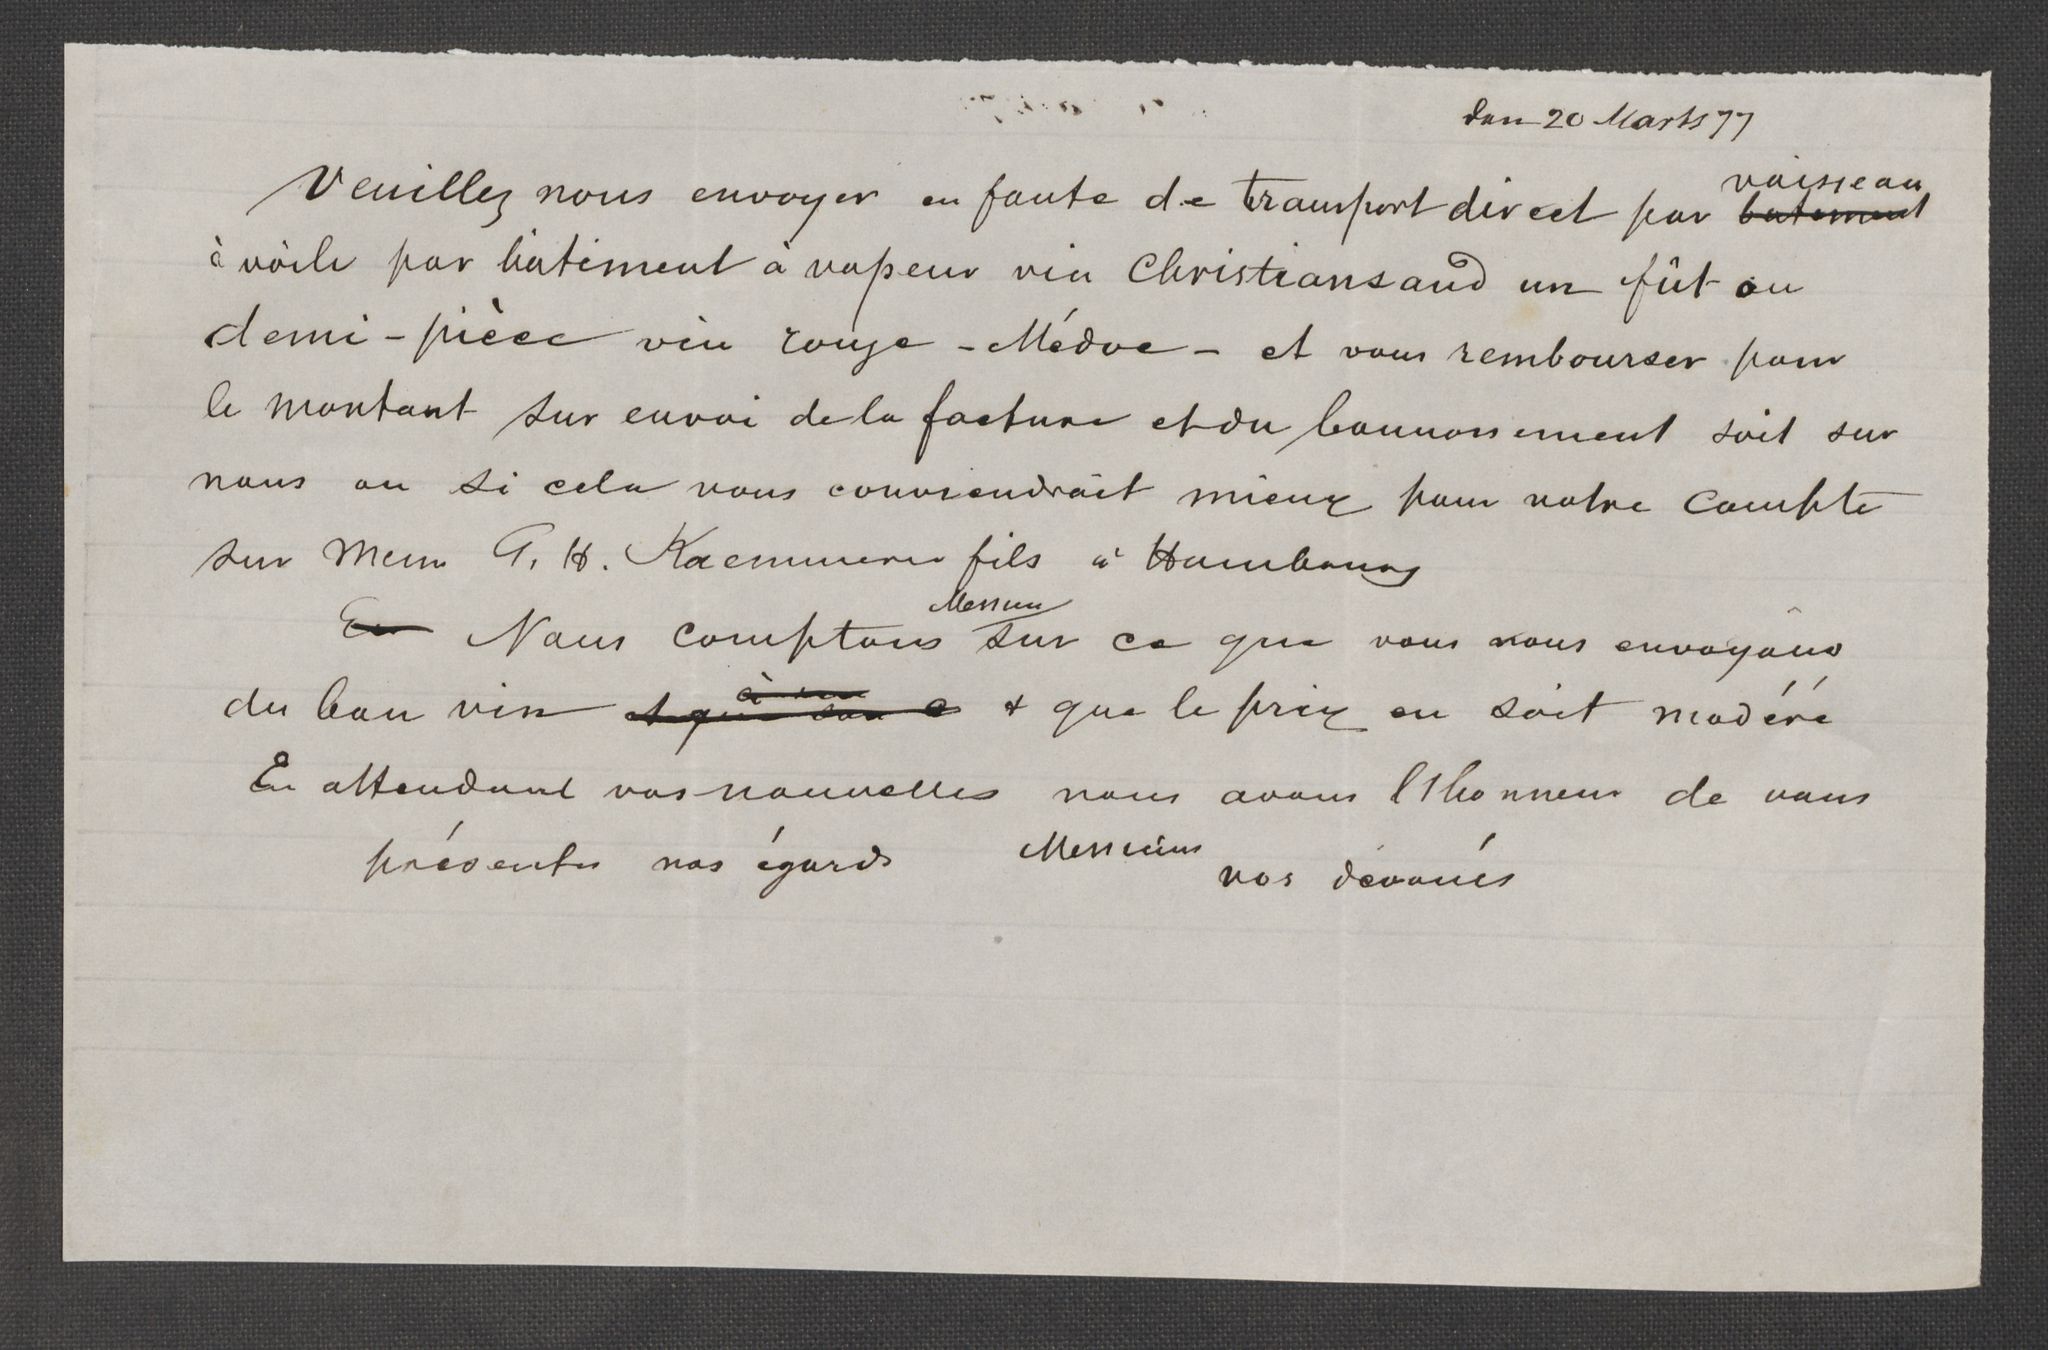 den 20 Marts 77
Veuillez nous envoyer en faute de transport direct par batement vaisseau
à voile par bâtiment à vapeur via Christiansand un fût ou
demi-pièce vin rouge - Médoc - et vous rembourser pour
le montant sur envoi de la facture et du connossement soit sur
nous ou si cela vous conviendrait mieux pour notre compte
sur Messrs G. H. Kaemmerer fils à Hambourg
En Nous comptons Messieurs sur ce que vous nous envoyons
du bon vin et que & que le prix en soit modéré
En attendant vos nouvelles nous avons l'honneur de vous
présenter nos égards Messieurs
vos dévoués